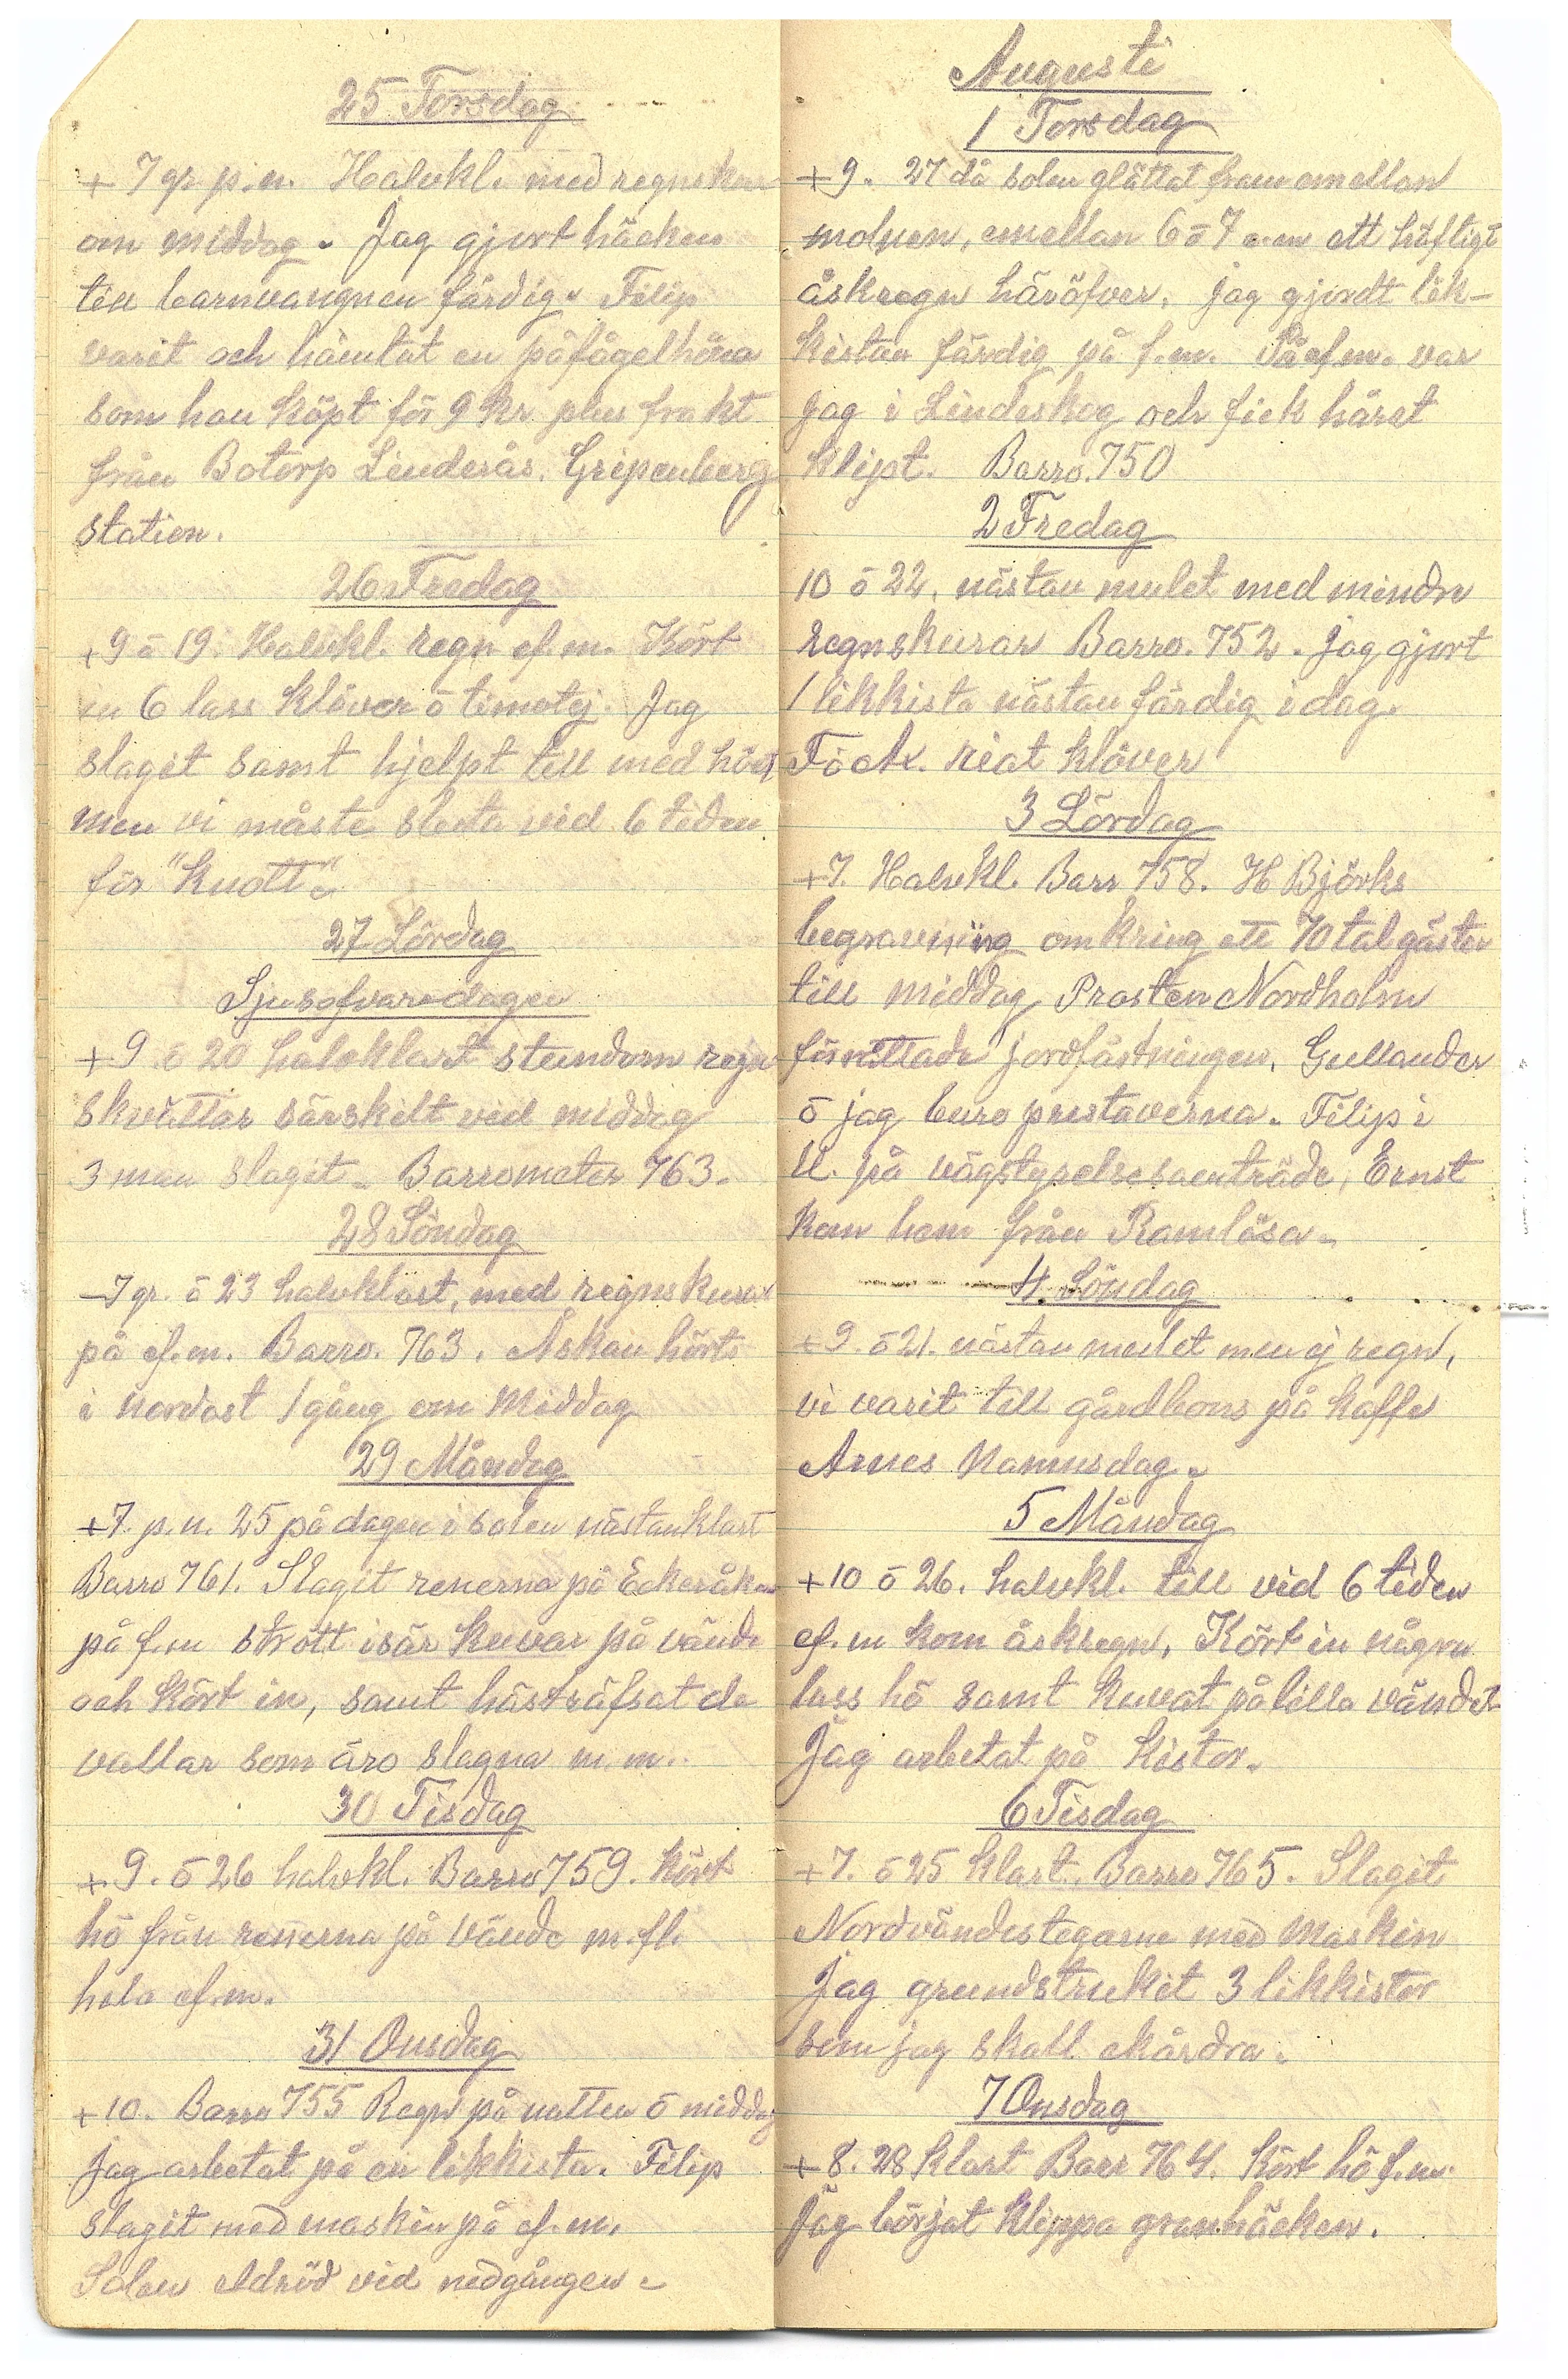 25 Torsdag
+ 7 gr. p.n. Halvkl. med regnskur
om middag. Jag gjort häcken
till barnvangnen färdig. Filip
varit och hämtat en påfågelhöna
som han köpt för 9 kr. plus frakt
från Botorp Linderås. Gripenberg
station.
26 Fredag
+9 o 19. Halvkl. regn ef.m. Kört
in 6 lass klöver o timotej. Jag
slagit samt hjelpt till med höet
men vi måste sluta vid 6 tiden
för "Knott".
27 Lördag
Sjusofvaredagen
+9 o 20 halvklart stundom regn
skvättar särskilt vid middag
3 man slagit. Barrometer 763.
28 Söndag
7 gr. o 23 halvklart, med regnskurar
på ef.m. Barro. 763. Åskan hörts
i nordost 1 gång om Middag
29 Måndag
+7. p.n. 25 på dagen i solen nästan klart
Barro 761. Slagit renerna på
på f.m strött isär kuvar på vände
och kört in, samt hästräfsat de
vallar som äro slagna m.m..
30 Tisdag
+9. o 26 halvkl. Barro 759. Kört
hö från renerna på Vände m.fl.
hela ef.m.
31 Onsdag
+10. Barro 755 Regn på natten o middag
Jag arbetat på en likkista. Filip
slagit med maskin på ef.m.
Solen eldröd vid nedgången.
Augusti
1 Torsdag
+9. 27 då solen glättat fram emellan
molnen, emellan 6 o 7 e.m ett häftigt
åskregn häröfver. Jag gjordt lik-
kistan färdig på f.m. På ef.m. var
jag i Lindeskog och fick håret
klipt. Barro. 750
2 Fredag
10 o 22. nästan mulet med mindre
regnskurar Barro. 752. Jag gjort
1 likkista nästan färdig i dag.
riat klöver
3 Lördag
+7. Halvkl. Barr 758. H Björks
begravning omkring ett 70 tal gäster
till middag, Prosten Nordholm
förrättade jordfästningen, Gullander
o jag buro prestaverna. Filip i
U. på vägstyrelsesamträde, Ernst
kom hem från Ramlösa.
4 Söndag
+9. o 21. nästan mulet men ej regn,
vi varit till gårdhons på kaffe
Arnes Namnsdag.
5 Måndag
+10 o 26. halvkl. till vid 6 tiden
ef.m kom åskregn, Kört in några
lass hö samt kuvat på lilla vändet
Jag arbetat på kistor.
6 Tisdag
+7. o 25 klart. Barro 765. Slagit
Nordvändestegarne med Maskin
Jag grundstrukit 3 likkistor
som jag skall ekådra.
7 Onsdag
+8. 28 klart Barr 764. Kört hö f.m.
Jag börjat klippa granhäcken.